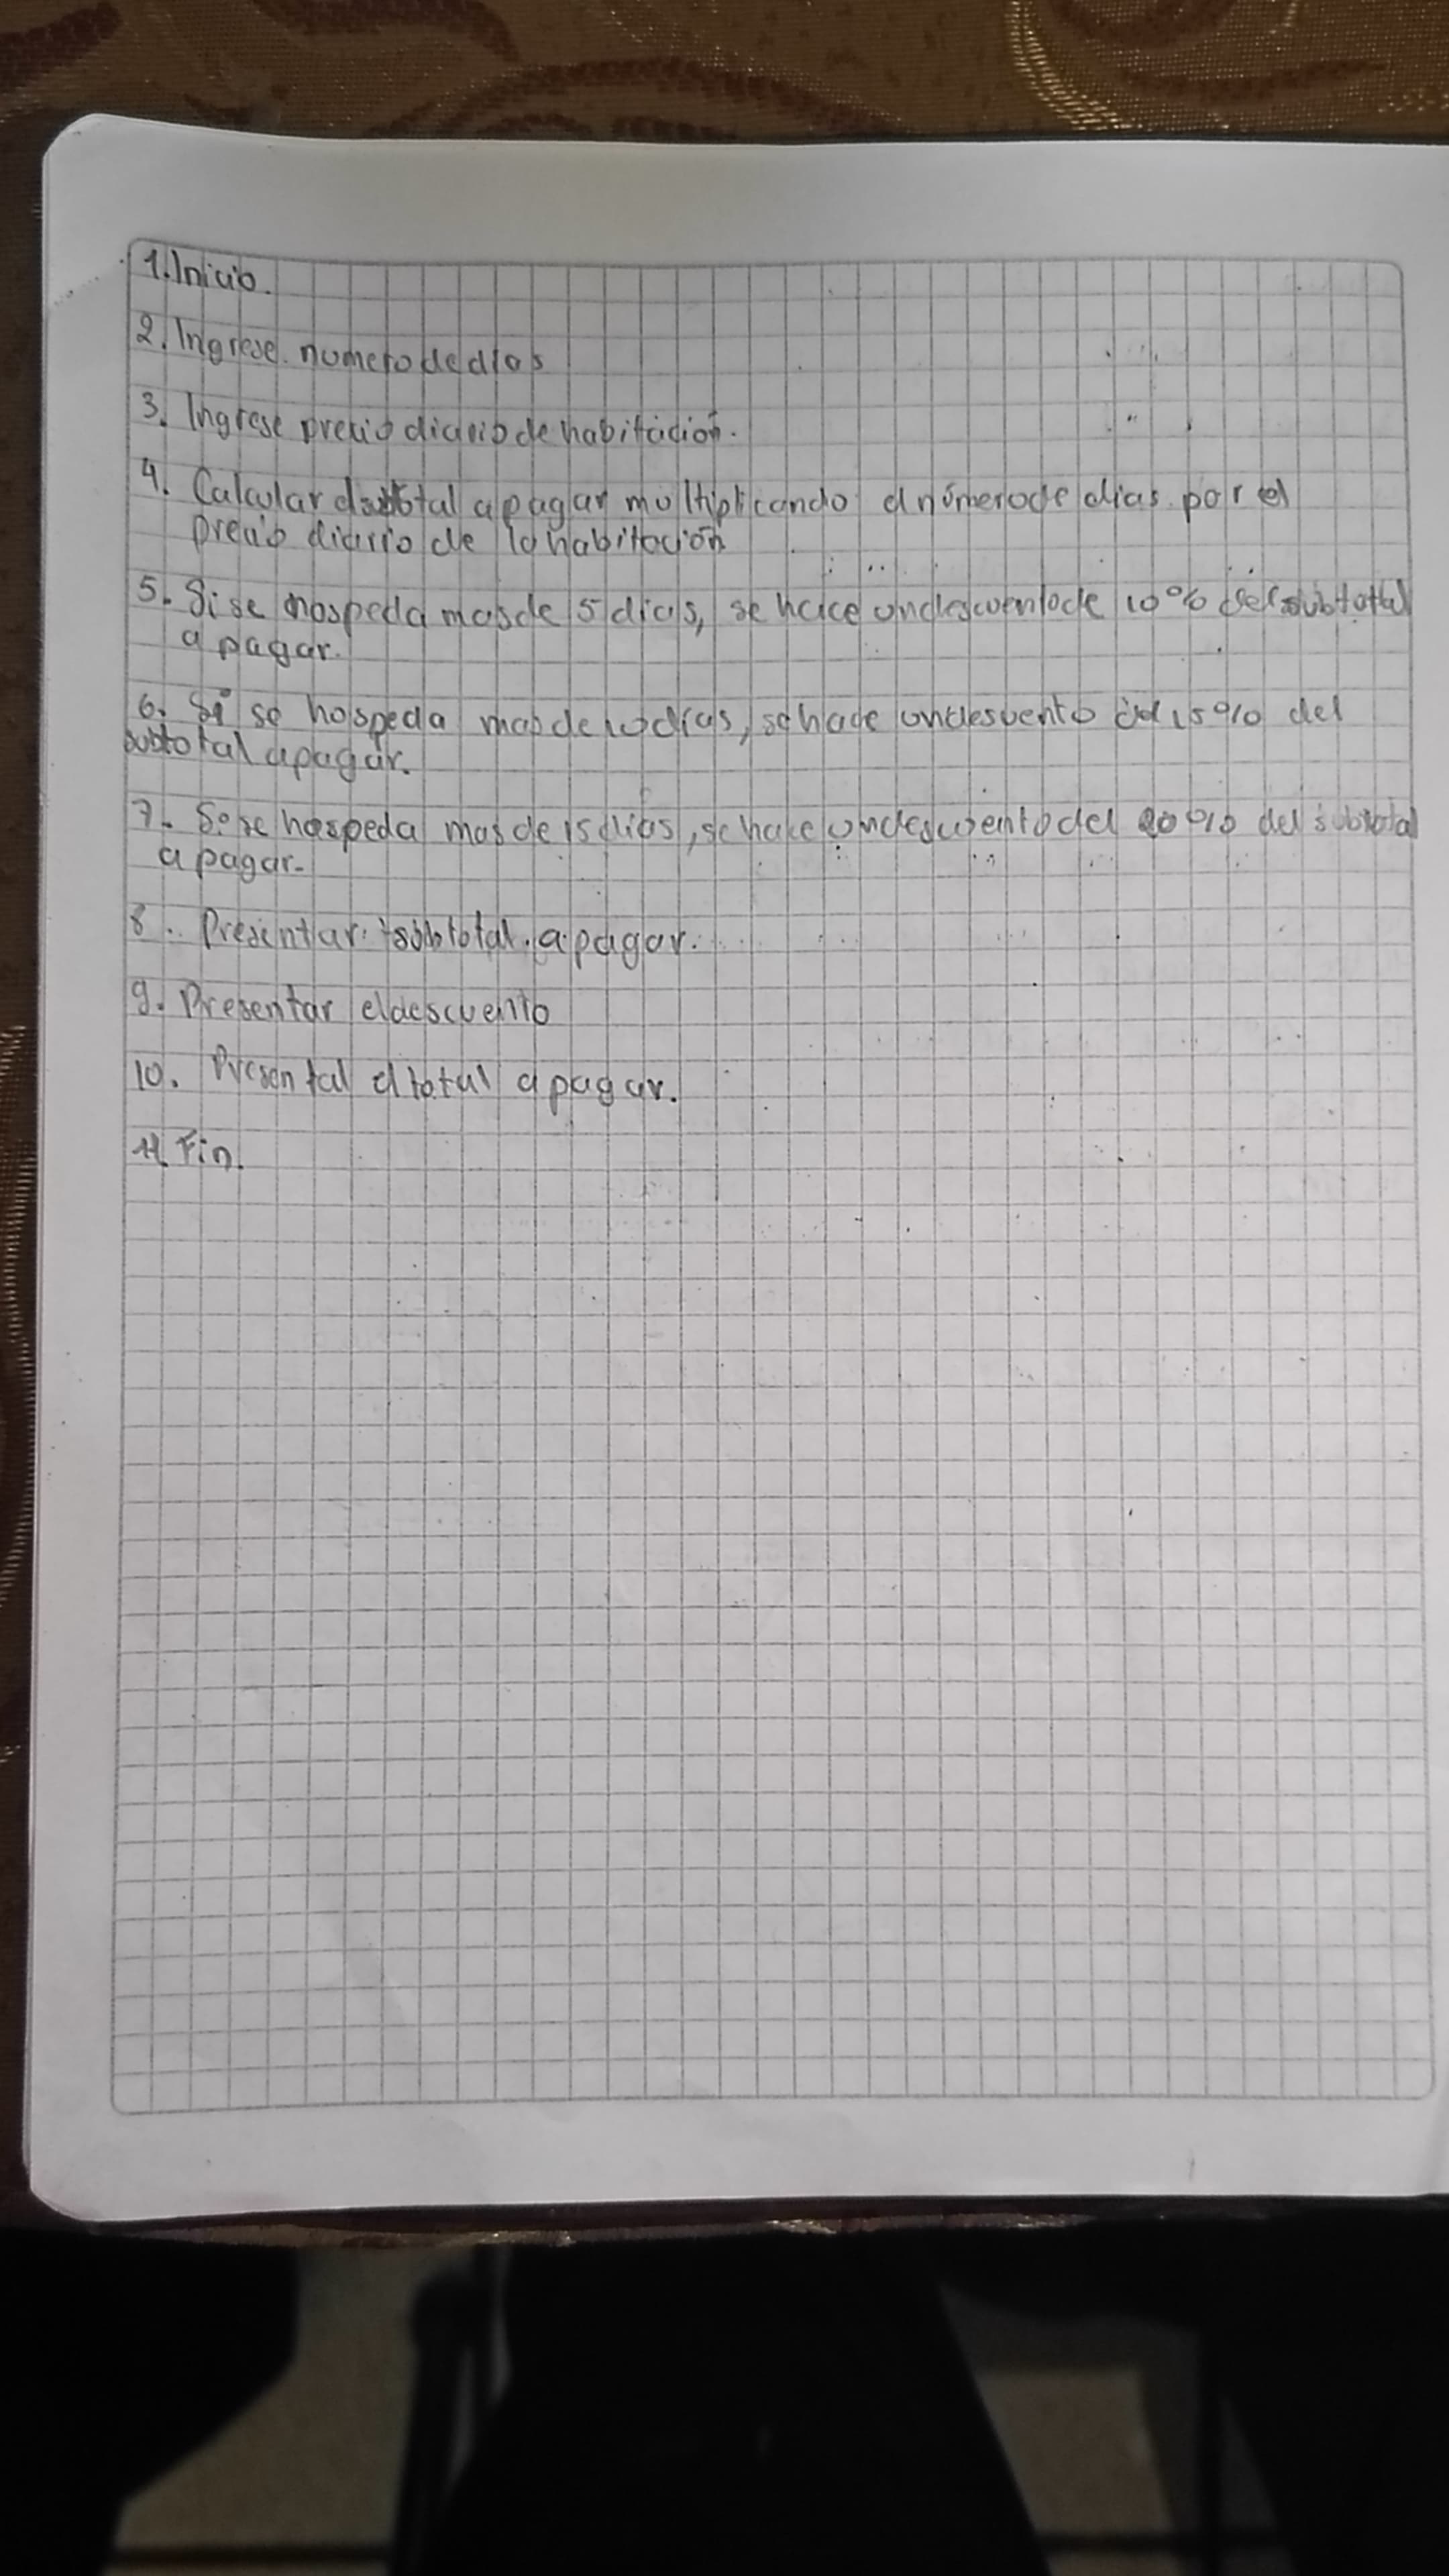 1. Inicio.
2. Ingrese numero de dias
3. Ingrese precio diario de habitación.
4. Calcular el subtotal a pagar multiplicando el número de dias por el
precio diario de la habitación
5. Si se hospeda mas de 5 dias, se hace un descuento de 10% del subtotal
a pagar.
6. Si se hospeda mas de 10 dias, se hace un descuento del 15% del
subtotal a pagar.
7. Si se hospeda mas de 15 dias, se hace un descuento del 20% del subtotal
a pagar.
8. Presentar subtotal a pagar.
9. Presentar el descuento
10. Presental el total a pagar.
11. Fin.